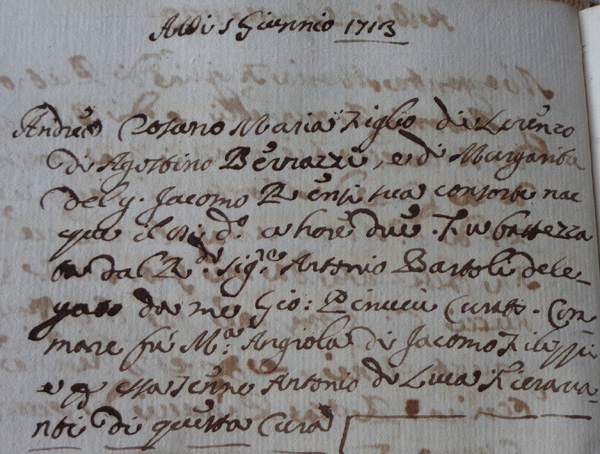 Adi 5 Giennio 1713
Andrea Cosano Maria Figlio di Lorenzo
di Agostino Berrazzi, e di Margarita
del q. Jacomo Renzi sua consorte nac
que il dì d.º a hore due. Fu battezza
to dal R.do Sig.re Antonio Bartoli dele-
gato da me Gio: Pinucci Curato. Com
mare fù M.ª Angiola di Jacomo Filippi
e p essa tenne Antonio di Luca Fierava
nti di questa Cura